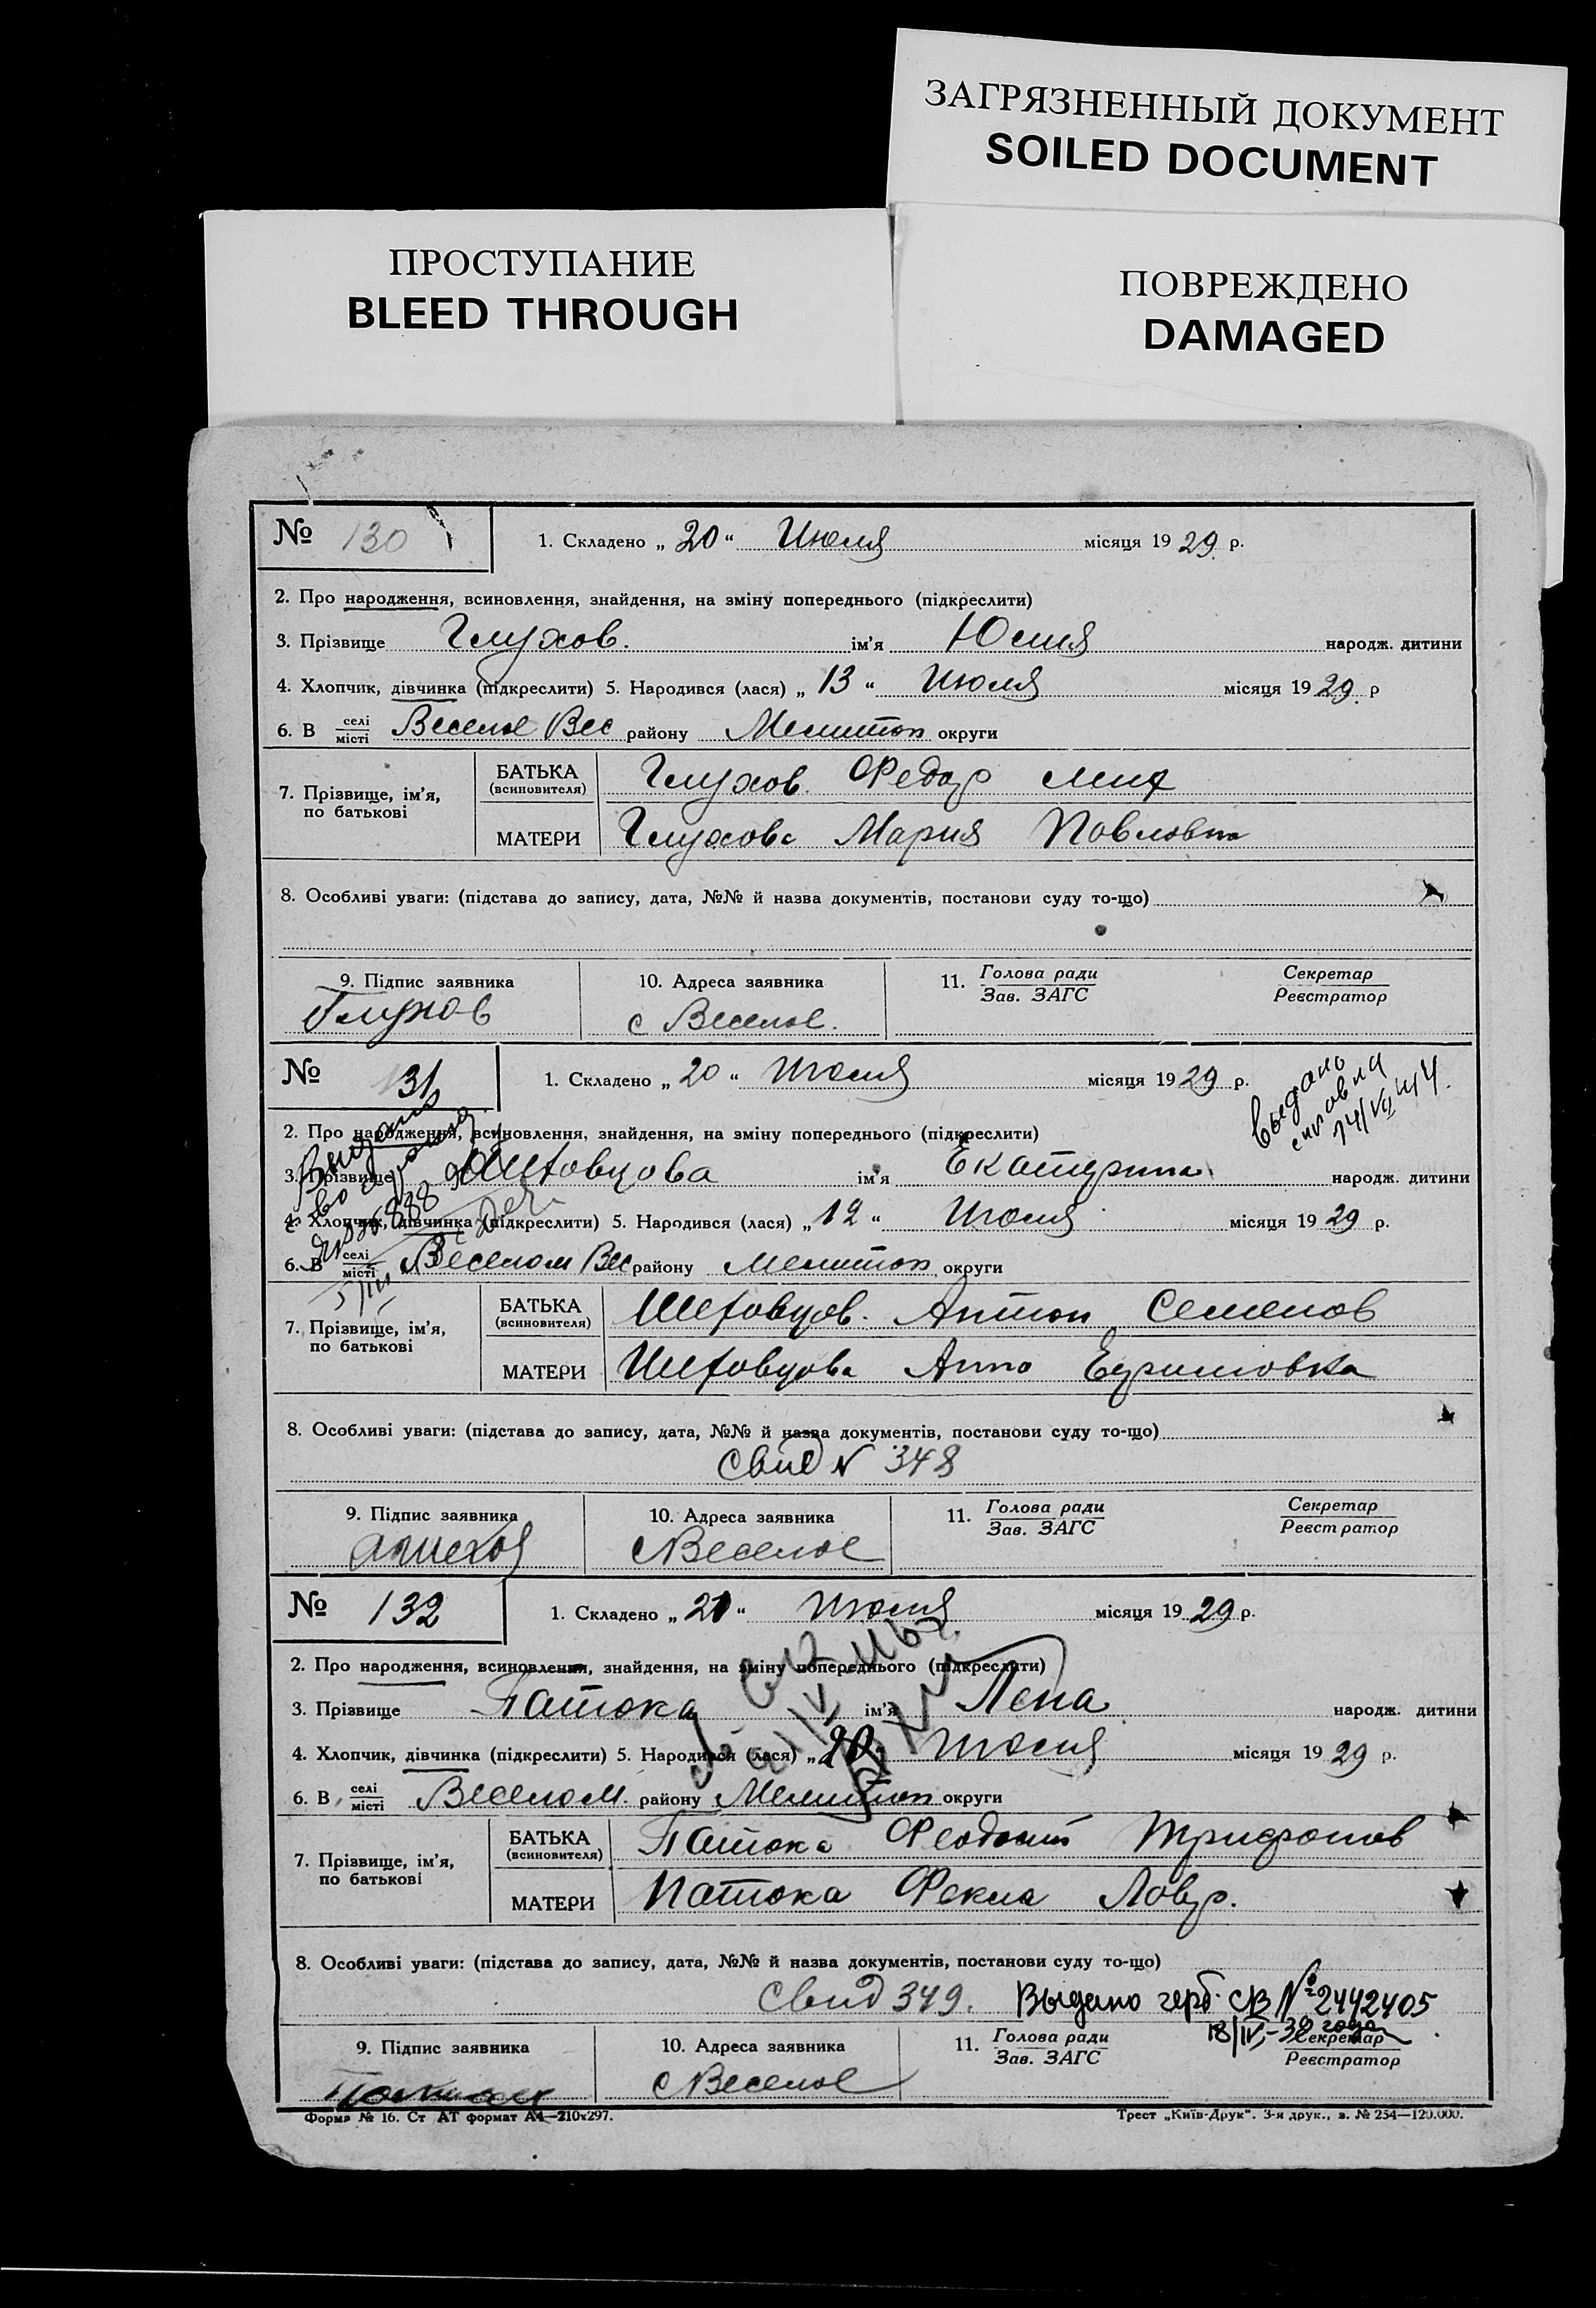 ЗАГРЯЗНЕННЫЙ ДОКУМЕНТ
SOILED DOCUMENT
ПРОСТУПАНИЕ
BLEED THROUGH
ПОВРЕЖДЕНО
DAMAGED
№ 130
1. Складено „ 20 “ Июля місяця 1929 р.
2. Про народження, всиновлення, знайдення, на зміну попереднього (підкреслити)
3. Прізвище Глухов. ім'я Юлия народж. дитини
4. Хлопчик, дівчинка (підкреслити) 5. Народився (лася) „ 13 “ Июля місяця 1929 р
6. В селі місті Веселое Вес району Мелитоп округи
7. Прізвище, ім'я, по батькові
БАТЬКА (всиновителя) Глухов Федор Мих
МАТЕРИ Глухова Мария Павловна
8. Особливі уваги: (підстава до запису, дата, №№ й назва документів, постанови суду то-що)
9. Підпис заявника 10. Адреса заявника 11. Голова ради Зав. ЗАГС Секретар Реєстратор
Глухов с Веселое.
№ 131
1. Складено „ 20 “ Июля місяця 1929 р.
выдано
справка
14/VII 44.
2. Про народження, всиновлення, знайдення, на зміну попереднього (підкреслити)
Выдано
3. Прізвище ім'я Екатерина народж. дитини
4. Хлопчик, дівчинка (підкреслити) 5. Народився (лася) „ 12 “ Июля місяця 1929 р.
6. В селі місті Веселом Вес району Мелитоп округи
7. Прізвище, ім'я, по батькові
БАТЬКА (всиновителя) Антон Семенов
МАТЕРИ Анна
8. Особливі уваги: (підстава до запису, дата, №№ й назва документів, постанови суду то-що)
Свид N 348
9. Підпис заявника 10. Адреса заявника 11. Голова ради Зав. ЗАГС Секретар Реєстратор
с Веселое
№ 132
1. Складено „ 21 “ Июля місяця 1929 р.
2. Про народження, всиновлення, знайдення, на зміну попереднього (підкреслити)
3. Прізвище Патока ім'я Лена народж. дитини
4. Хлопчик, дівчинка (підкреслити) 5. Народився (лася) „ 20 “ Июля місяця 1929 р.
6. В селі місті Веселом району Мелитоп округи
7. Прізвище, ім'я, по батькові
БАТЬКА (всиновителя) Патока Феодосий Трифонов
МАТЕРИ Патока Фекла Лавр.
8. Особливі уваги: (підстава до запису, дата, №№ й назва документів, постанови суду то-що)
Свид 349. Выдано герб. св № 2442405
18/IV-38 года
9. Підпис заявника 10. Адреса заявника 11. Голова ради Зав. ЗАГС Секретар Реєстратор
с Веселое
Форма № 16. Ст АТ формат А4—210х297. Трест „Київ-Друк". 3-я друк., з. № 254—120.000.